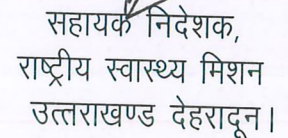 सहायक निदेशक,
राष्ट्रीय स्वास्थ्य मिशन
उत्तराखण्ड देहरादून।